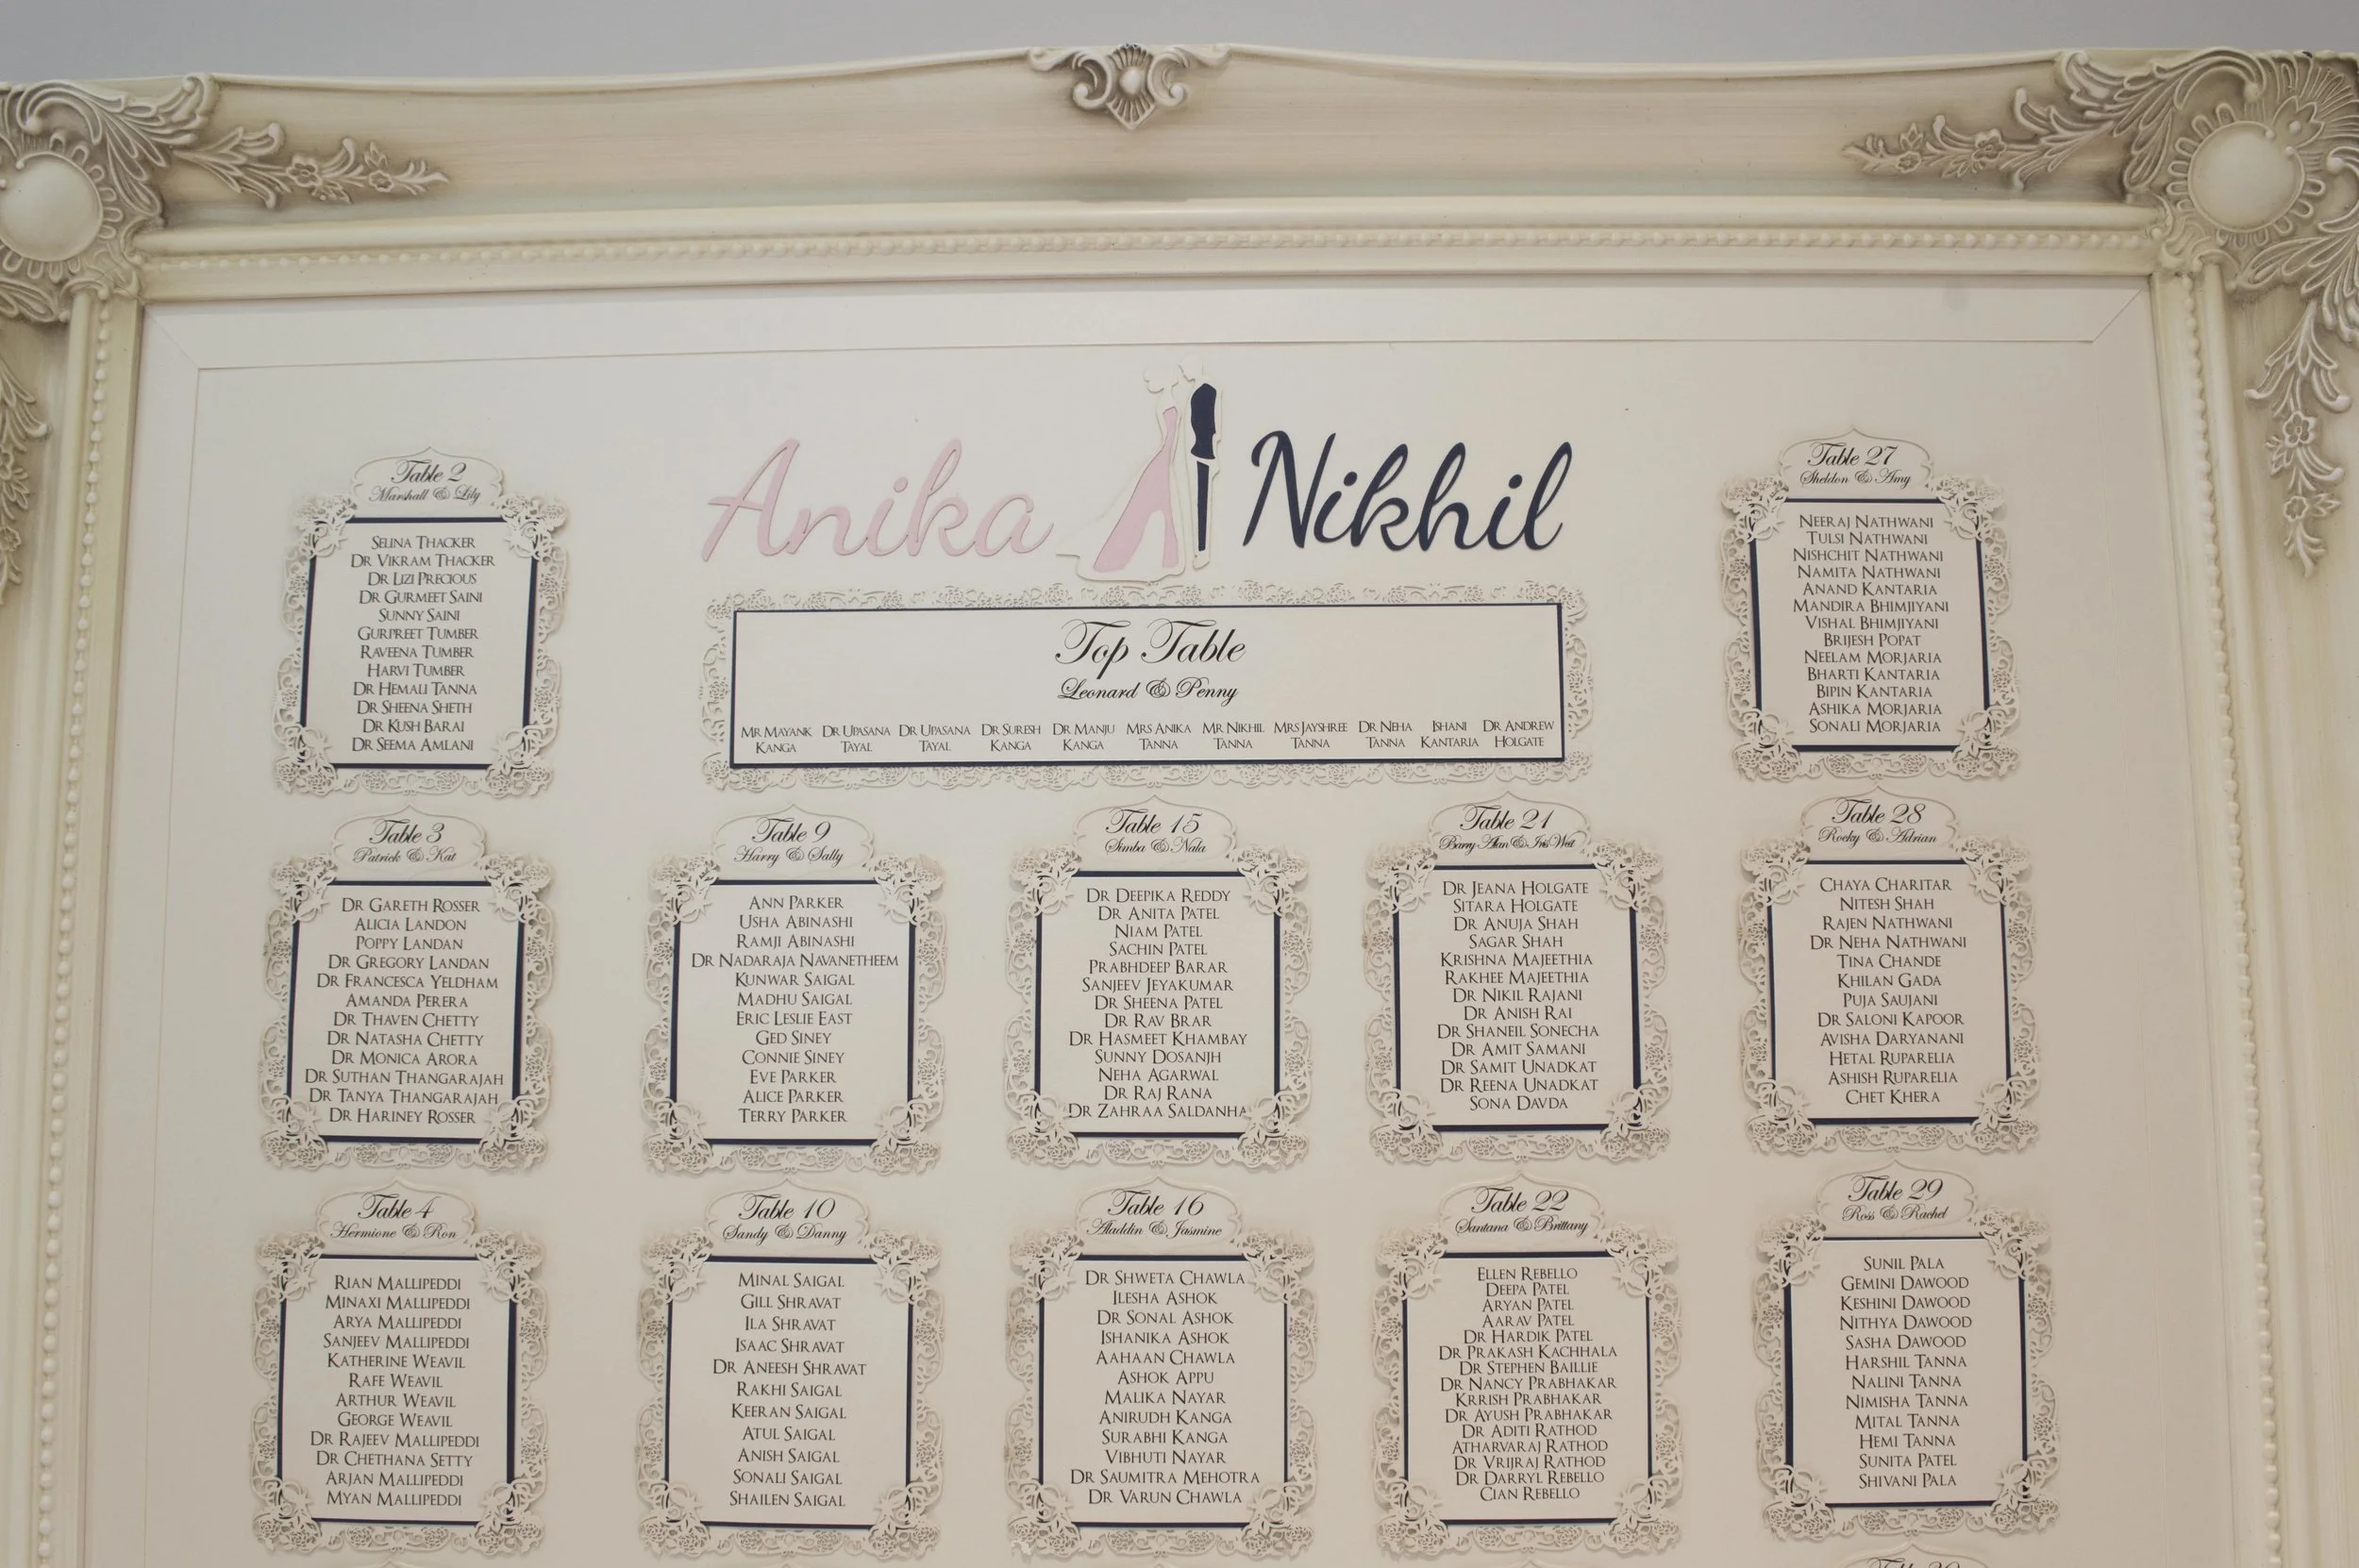 Anika Nikhil
Top Table
Leonard & Penny
MR MAYANK KANGA
DR UPASANA TAYAL
DR UPASANA TAYAL
DR SURESH KANGA
DR MANJU KANGA
MRS ANIKA TANNA
MR NIKHIL TANNA
MRS JAYSHREE TANNA
DR NEHA TANNA
ISHANI KANTARIA
DR ANDREW HOLGATE
Table 2
Marshall & Lily
SELINA THACKER
DR VIKRAM THACKER
DR LIZI PRECIOUS
DR GURMEET SAINI
SUNNY SAINI
GURPREET TUMBER
RAVEENA TUMBER
HARVI TUMBER
DR HEMALI TANNA
DR SHEENA SHETH
DR KUSH BARAI
DR SEEMA AMLANI
Table 27
Sheldon & Amy
NEERAJ NATHWANI
TULSI NATHWANI
NISHCHIT NATHWANI
NAMITA NATHWANI
ANAND KANTARIA
MANDIRA BHIMJIYANI
VISHAL BHIMJIYANI
BRIJESH POPAT
NEELAM MORJARIA
BHARTI KANTARIA
BIPIN KANTARIA
ASHIKA MORJARIA
SONALI MORJARIA
Table 3
Patrick & Kat
DR GARETH ROSSER
ALICIA LANDON
POPPY LANDAN
DR GREGORY LANDAN
DR FRANCESCA YELDHAM
AMANDA PERERA
DR THAVEN CHETTY
DR NATASHA CHETTY
DR MONICA ARORA
DR SUTHAN THANGARAJAH
DR TANYA THANGARAJAH
DR HARINEY ROSSER
Table 9
Harry & Sally
ANN PARKER
USHA ABINASHI
RAMJI ABINASHI
DR NADARAJA NAVANETHEEM
KUNWAR SAIGAL
MADHU SAIGAL
ERIC LESLIE EAST
GED SINEY
CONNIE SINEY
EVE PARKER
ALICE PARKER
TERRY PARKER
Table 15
Simba & Nala
DR DEEPIKA REDDY
DR ANITA PATEL
NIAM PATEL
SACHIN PATEL
PRABHDEEP BARAR
SANJEEV JEYAKUMAR
DR SHEENA PATEL
DR RAV BRAR
DR HASMEET KHAMBAY
SUNNY DOSANJH
NEHA AGARWAL
DR RAJ RANA
DR ZAHRAA SALDANHA
Table 21
Barry Alan & Iris West
DR JEANA HOLGATE
SITARA HOLGATE
DR ANUJA SHAH
SAGAR SHAH
KRISHNA MAJEETHIA
RAKHEE MAJEETHIA
DR NIKIL RAJANI
DR ANISH RAI
DR SHANEIL SONECHA
DR AMIT SAMANI
DR SAMIT UNADKAT
DR REENA UNADKAT
SONA DAVDA
Table 28
Rocky & Adrian
CHAYA CHARITAR
NITESH SHAH
RAJEN NATHWANI
DR NEHA NATHWANI
TINA CHANDE
KHILAN GADA
PUJA SAUJANI
DR SALONI KAPOOR
AVISHA DARYANANI
HETAL RUPARELIA
ASHISH RUPARELIA
CHET KHERA
Table 4
Hermione & Ron
RIAN MALLIPEDDI
MINAXI MALLIPEDDI
ARYA MALLIPEDDI
SANJEEV MALLIPEDDI
KATHERINE WEAVIL
RAFE WEAVIL
ARTHUR WEAVIL
GEORGE WEAVIL
DR RAJEEV MALLIPEDDI
DR CHETHANA SETTY
ARJAN MALLIPEDDI
MYAN MALLIPEDDI
Table 10
Sandy & Danny
MINAL SAIGAL
GILL SHRAVAT
ILA SHRAVAT
ISAAC SHRAVAT
DR ANEESH SHRAVAT
RAKHI SAIGAL
KEERAN SAIGAL
ATUL SAIGAL
ANISH SAIGAL
SONALI SAIGAL
SHAILEN SAIGAL
Table 16
Aladdin & Jasmine
DR SHWETA CHAWLA
ILESHA ASHOK
DR SONAL ASHOK
ISHANIKA ASHOK
AAHAAN CHAWLA
ASHOK APPU
MALIKA NAYAR
ANIRUDH KANGA
SURABHI KANGA
VIBHUTI NAYAR
DR SAUMITRA MEHOTRA
DR VARUN CHAWLA
Table 22
Santana & Brittany
ELLEN REBELLO
DEEPA PATEL
ARYAN PATEL
AARAV PATEL
DR HARDIK PATEL
DR PRAKASH KACHHALA
DR STEPHEN BAILLIE
DR NANCY PRABHAKAR
KRRISH PRABHAKAR
DR AYUSH PRABHAKAR
DR ADITI RATHOD
ATHARVARAJ RATHOD
DR VRIJRAJ RATHOD
DR DARRYL REBELLO
CIAN REBELLO
Table 29
Ross & Rachel
SUNIL PALA
GEMINI DAWOOD
KESHINI DAWOOD
NITHYA DAWOOD
SASHA DAWOOD
HARSHIL TANNA
NALINI TANNA
NIMISHA TANNA
MITAL TANNA
HEMI TANNA
SUNITA PATEL
SHIVANI PALA